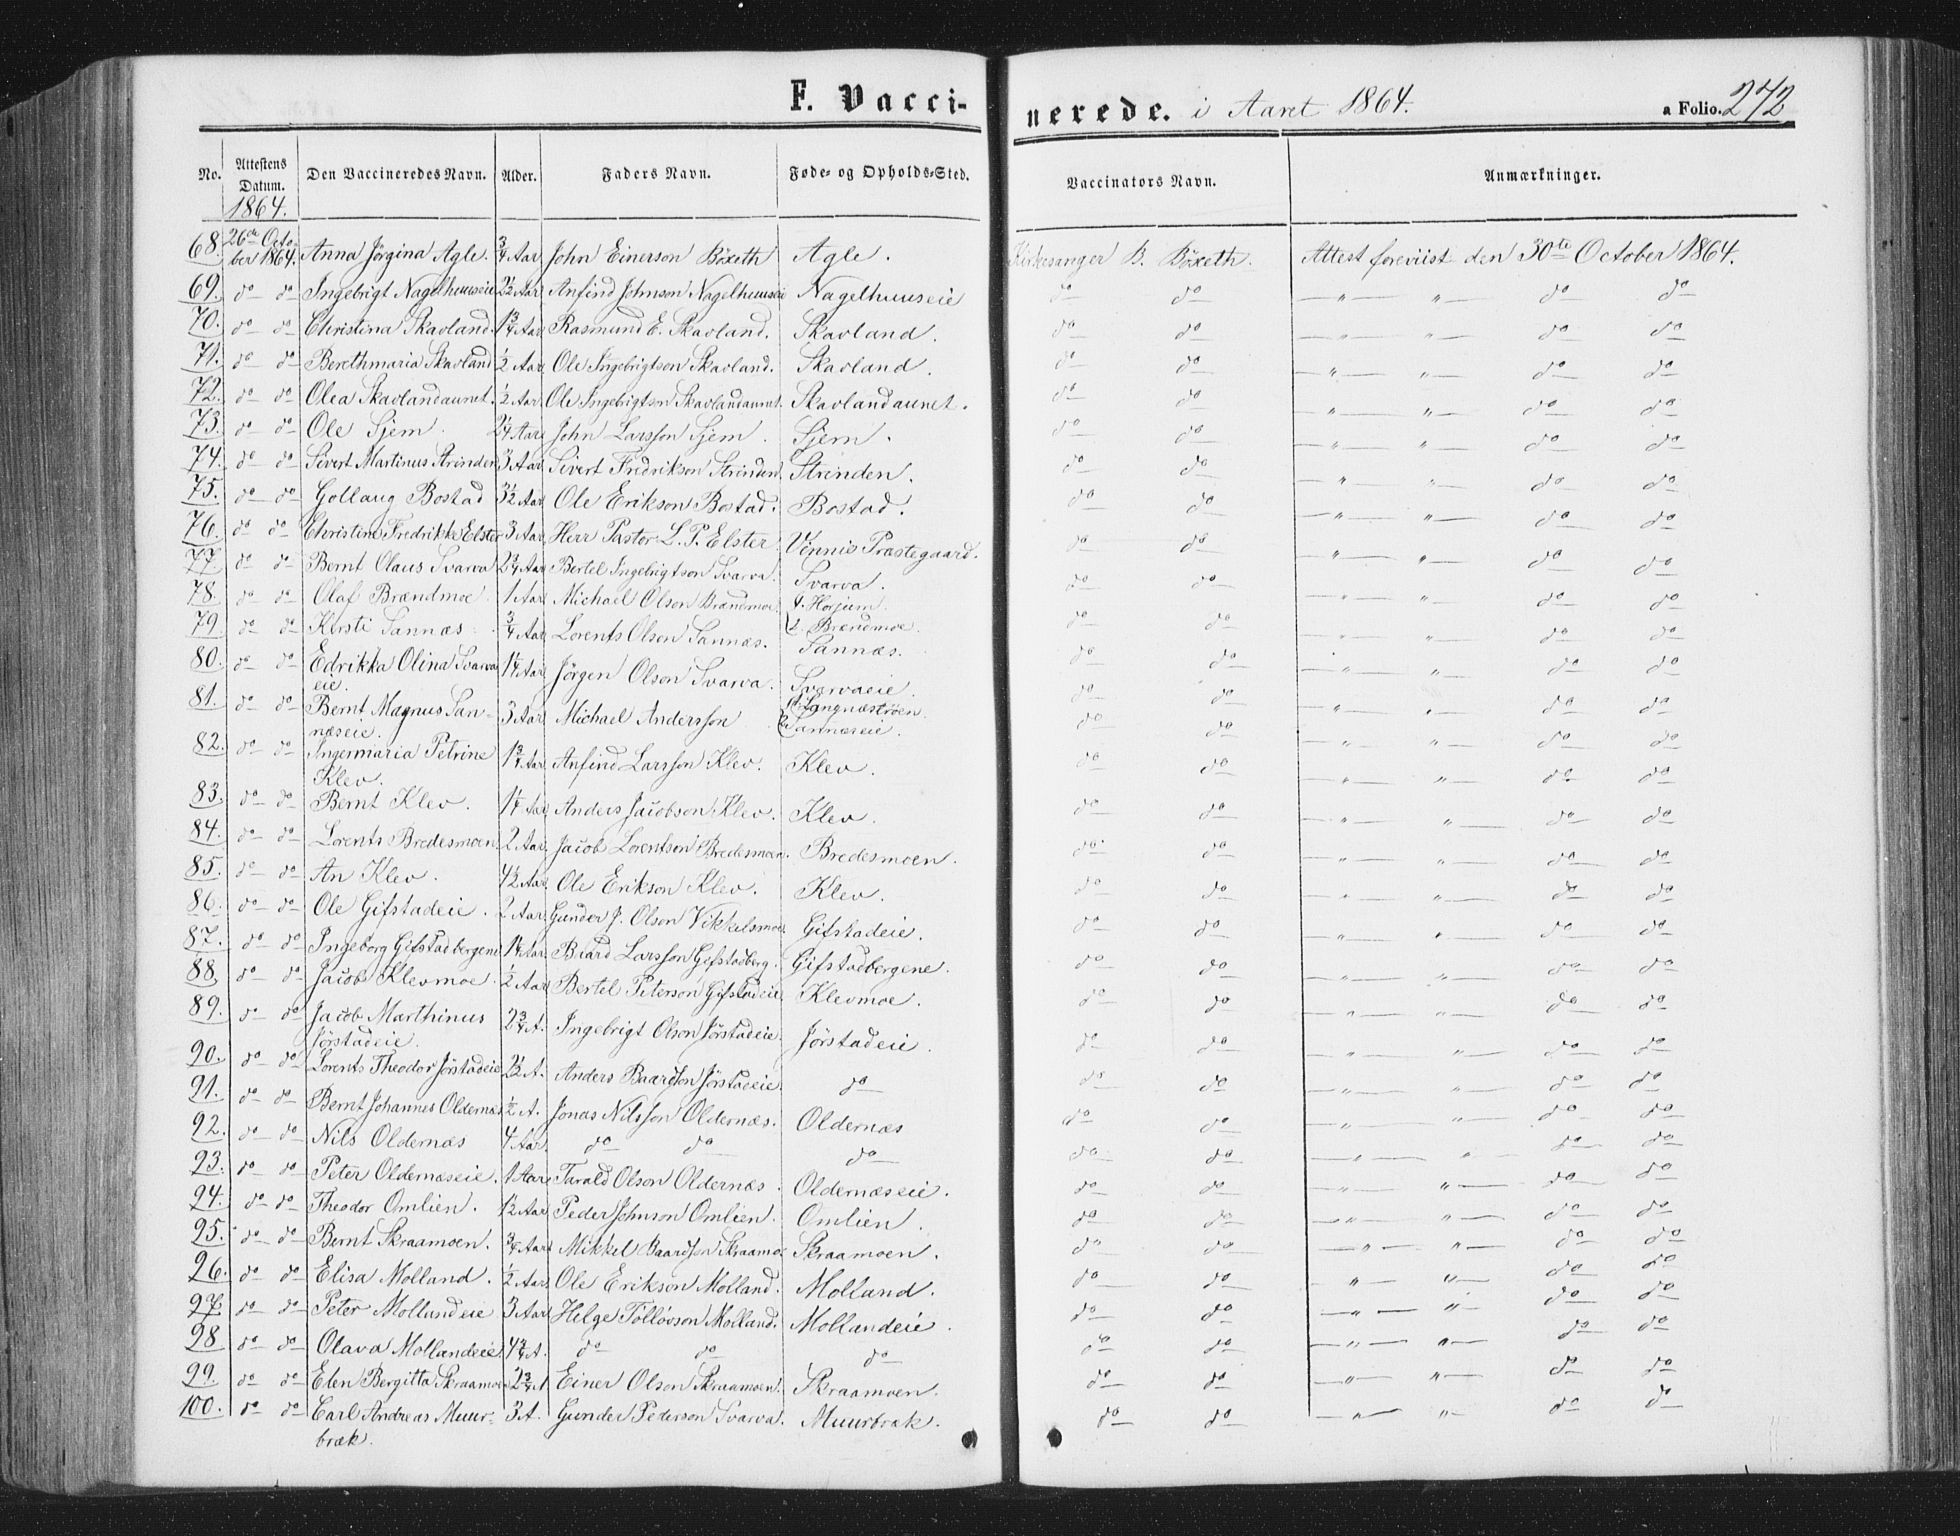 F. Vaccinerede. i Aaret 1864. a Folio. 272
No. Attestens Datum. 1864. Den Vaccineredes Navn. Alder. Faders Navn. Føde- og Opholds-Sted. Vaccinators Navn. Anmærkninger.
68. 26de October 1864. Anna Jörgina Agle. 3/4 Aar John Einerson Böxeth Agle. Kirkesanger B. Böxeth. Attest foreviist den 30te October 1864.
69. do do Ingebrigt Nagelhuuseie 2 1/2 Aar Anfind Johnson Nagelhuuseie Nagelhuuseie do do — " — " — do do
70. do do Christina Skavland. 1 3/4 Aar Rasmund E. Skavland. Skavland. do do — " — " — do do
71. do do Berethmaria Skavland 1/2 Aar Ole Ingebrigtson Skavland. Skavland. do do — " — " — do do
72. do do Olea Skavlandaunet. 1/2 Aar. Ole Ingebrigtson Skavlandaunet. Skavlandaunet. do do — " — " — do do
73. do do Ole Sjem. 2 1/4 Aar John Larsson Sjem. Sjem. do do — " — " — do do
74. do do Sivert Martinus Strinden 3 Aar Sivert Fredrikson Strinden. Strinden. do do — " — " — do do
75. do do Gollaug Bostad 3 1/2 Aar Ole Erikson Bostad. Bostad. do do — " — " — do do
76. do do Christine Fredrikke Elster 3 Aar Herr Pastor L. P. Elster Vinnie Præstegaard. do do — " — " — do do
77. do do Bernt Olaus Svarva 2 3/4 Aar Bertel Ingebrigtson Svarva. Svarva. do do — " — " — do do
78. do do Olaf Brændmoe. 1 Aar Michael Olson Brændmoe f. Horjem. do do — " — " — do do
79. do do Kirsti Sannæs. 3/4 Aar Lorents Olson Sannæs. Brændmoe. Sannæs. do do — " — " — do do
80. do do Edrikka Olina Svarvaeie. 1 1/4 Aar Jörgen Olson Svarva. Svarvaeie. do do — " — " — do do
81. do do Bernt Magnus Sannæseie. 3 Aar Michael Andersson Sannæseie. do do — " — " — do do
82. do do Ingermaria Petrine Klev. 1 3/4 Aar Anfind Larsson Klev. Klev. do do — " — " — do do
83. do do Bernt Klev. 1 1/4 Aar Anders Jacobson Klev. Klev. do do — " — " — do do
84. do do Lorents Bredesmoen 2 Aar. Jacob Lorentson Bredesmoen. Bredesmoen. do do — " — " — do do
85. do do An Klev. 4 1/2 Aar. Ole Erikson Klev. Klev. do do — " — " — do do
86. do do Ole Gifstadeie. 2 Aar Gunder J. Olson Vikkelsmoe. Gifstadeie. do do — " — " — do do
87. do do Ingeborg Gifstadbergene 1 1/4 Aar. Biard Larsson Gifstadberg. Gifstadbergene. do do — " — " — do do
88. do do Jacob Klevmoe. 1/2 Aar Bertel Peterson Gifstadeie Klevmoe. do do — " — " — do do
89. do do Jacob Marthinus Jörstadeie. 2 3/4 A. Ingebrigt Olson Jörstadeie. Jörstadeie. do do — " — " — do do
90. do do Lorents Theodor Jörstadeie 2 1/2 A. Anders Baardson Jörstadeie. do do do — " — " — do do
91. do do Bernt Johannes Oldernæs 1/2 A. Jonas Nilsson Oldernæs. Oldernæs do do — " — " — do do
92. do do Nils Oldernæs 4 Aar. do do do do do — " — " — do do
93. do do Peter Oldernæseie. 1 Aar Tarald Olson Oldernæs. Oldernæseie. do do — " — " — do do
94. do do Theodor Omlien. 1 1/2 Aar. Peder Johnson Omlien. Omlien. do do — " — " — do do
95. do do Bernt Skraamoen. 3/4 Aar Mikkel Baardson Skraamoe Skraamoen. do do — " — " — do do
96. do do Elisa Molland. 1/2 Aar. Ole Erikson Molland. Molland. do do — " — " — do do
97. do do Peter Mollandeie 3 Aar Helge Tollövson Molland. Mollandeie. do do — " — " — do do
98 do do Olava Mollandeie. 4 3/4 A. do do do do do — " — " — do do
99. do do Elen Bergitta Skraamoe 2 3/4 A Einer Olson Skraamoen. Skraamoen. do do — " — " — do do
100. do do Carl Andreas Muurbræk. 3 A. Gunder Pederson Svarva. Muurbræk. do do — " — " — do do